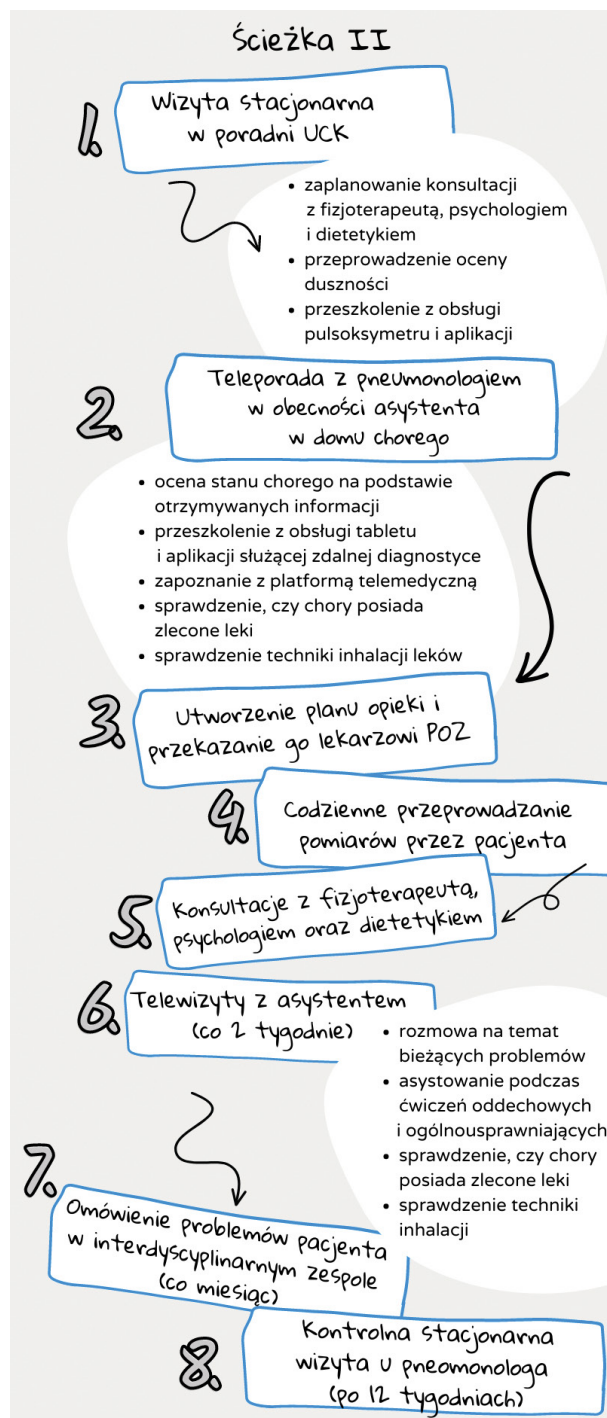 Ścieżka II
1.
Wizyta stacjonarna
w poradni UCK
• zaplanowanie konsultacji
z fizjoterapeutą, psychologiem
i dietetykiem
• przeprowadzenie oceny
duszności
• przeszkolenie z obsługi
pulsoksymetru i aplikacji
2.
Teleporada z pneumonologiem
w obecności asystenta
w domu chorego
• ocena stanu chorego na podstawie
otrzymywanych informacji
• przeszkolenie z obsługi tabletu
i aplikacji służącej zdalnej diagnostyce
• zapoznanie z platformą telemedyczną
• sprawdzenie, czy chory posiada
zlecone leki
• sprawdzenie techniki inhalacji leków
3.
Utworzenie planu opieki i
przekazanie go lekarzowi POZ
4.
Codzienne przeprowadzanie
pomiarów przez pacjenta
5.
Konsultacje z fizjoterapeutą,
psychologiem oraz dietetykiem
6.
Telewizyty z asystentem
(co 2 tygodnie)
• rozmowa na temat
bieżących problemów
• asystowanie podczas
ćwiczeń oddechowych
i ogólnousprawniających
• sprawdzenie, czy chory
posiada zlecone leki
• sprawdzenie techniki
inhalacji
7.
Omówienie problemów pacjenta
w interdyscyplinarnym zespole
(co miesiąc)
8.
Kontrolna stacjonarna
wizyta u pneomonologa
(po 12 tygodniach)